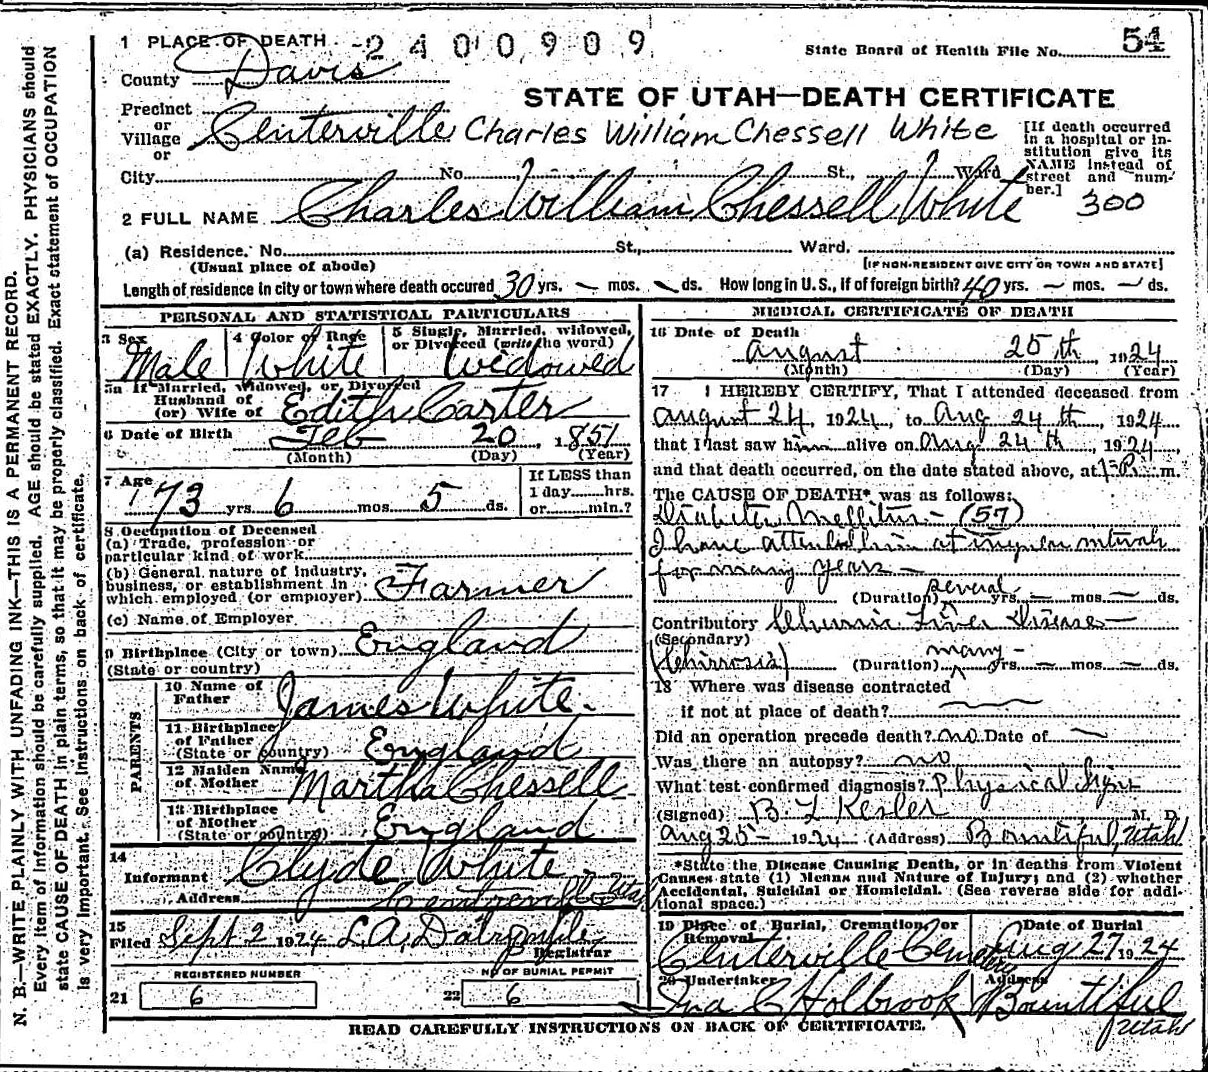 1 PLACE OF DEATH -2400909
State Board of Health File No. 54
County Davis
STATE OF UTAH—DEATH CERTIFICATE
Precinct
or
Village Centerville Charles William Chessell White
or
[If death occurred
in a hospital or in-
stitution give its
NAME instead of
street and num-
ber.] 300
City No. St., Ward
2 FULL NAME Charles William Chessell White
(a) Residence. No. St., Ward.
(Usual place of abode) [IF NON-RESIDENT GIVE CITY OR TOWN AND STATE]
Length of residence in city or town where death occured 30 yrs. — mos. — ds. How long in U. S., if of foreign birth? 40 yrs. — mos. — ds.
PERSONAL AND STATISTICAL PARTICULARS
3 Sex 4 Color or Race 5 Single, Married, widowed,
or Divorced (write the word)
Male White Widowed
5a If Married, widowed, or Divorced
Husband of
(or) Wife of Edith Carter
6 Date of Birth Feb 20 1851
(Month) (Day) (Year)
7 Age 73 yrs. 6 mos. 5 ds.
If LESS than
1 day hrs.
or min.?
8 Occupation of Deceased
(a) Trade, profession or
particular kind of work
(b) General nature of industry,
business, or establishment in
which employed (or employer) Farmer
(c) Name of Employer
9 Birthplace (City or town) England
(State or country)
PARENTS
10 Name of
Father James White.
11 Birthplace
of Father
(State or country) England
12 Maiden Name
of Mother Martha Chessell
13 Birthplace
of Mother
(State or country) England
14
Informant Clyde White
Address Centerville Utah
15
Filed Sept 2 1924 L. A. Dalrymple
Registrar
REGISTERED NUMBER NO OF BURIAL PERMIT
21 6 22 6
MEDICAL CERTIFICATE OF DEATH
16 Date of Death
August 25th 1924
(Month) (Day) (Year)
17 I HEREBY CERTIFY, That I attended deceased from
August 24, 1924, to Aug 24th, 1924
that I last saw him alive on Aug 24th, 1924,
and that death occurred, on the date stated above, at 1 P. m.
The CAUSE OF DEATH* was as follows:
Diabetes Mellitus — (57)
I have attended him at irregular intervals
for many years —
(Duration) several yrs. — mos. — ds.
Contributory Chronic Liver Disease —
(Secondary)
(Chirrosis) (Duration) many - yrs. — mos. — ds.
18 Where was disease contracted
if not at place of death?
Did an operation precede death? no Date of —
Was there an autopsy? no
What test confirmed diagnosis? Physical Signs
(Signed) B L Kesler M. D.
Aug 25 - 1924 (Address) Bountiful, Utah
*State the Disease Causing Death, or in deaths from Violent
Causes state (1) Means and Nature of Injury; and (2) whether
Accidental, Suicidal or Homicidal. (See reverse side for addi-
tional space.)
19 Place of Burial, Cremation, or
Removal Date of Burial
Centerville Cemetery Aug 27 1924
20 Undertaker Address
C Holbrook Bountiful
Utah
READ CAREFULLY INSTRUCTIONS ON BACK OF CERTIFICATE.
N. B.—WRITE PLAINLY WITH UNFADING INK—THIS IS A PERMANENT RECORD.
Every item of information should be carefully supplied. AGE should be stated EXACTLY. PHYSICIANS should
state CAUSE OF DEATH in plain terms, so that it may be properly classified. Exact statement of OCCUPATION
is very important. See instructions on back of certificate.